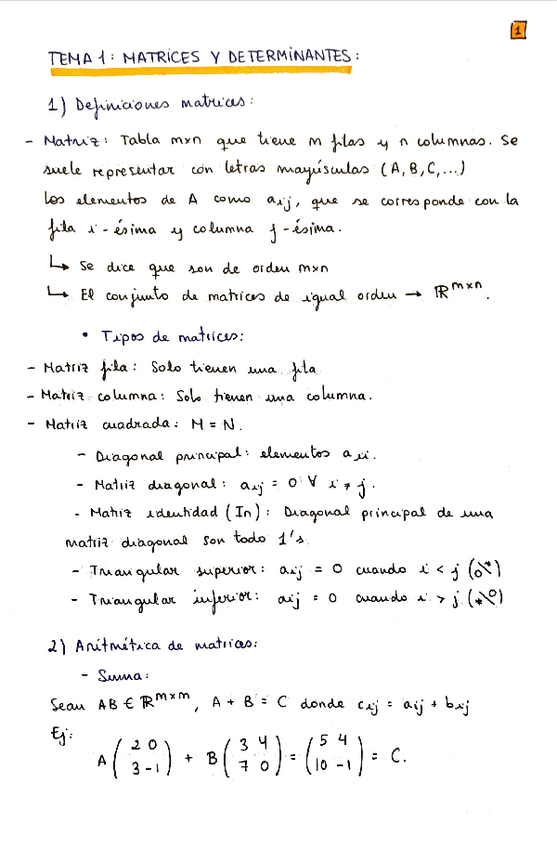 1
TEMA 1: MATRICES Y DETERMINANTES:
1) Definiciones matrices:
- Matriz: Tabla mxn que tiene m filas y n columnas. Se
suele representar con letras mayúsculas (A,B,C,...)
Los elementos de A como aij, que se corresponde con la
fila i-ésima y columna j-ésima.
↳ Se dice que son de orden mxn
↳ El conjunto de matrices de igual orden → ℝ^mxn.
• Tipos de matrices:
- Matriz fila: Solo tienen una fila
- Matriz columna: Solo tienen una columna.
- Matriz cuadrada: M = N.
- Diagonal principal: elementos aii.
- Matriz diagonal: aij = 0 ∀ i ≠ j.
- Matriz identidad (In): Diagonal principal de una
matriz diagonal son todo 1's.
- Triangular superior: aij = 0 cuando i < j (0\*)
- Triangular inferior: aij = 0 cuando i > j (*\0)
2) Aritmética de matrices:
- Suma:
Sean AB ∈ ℝ^mxm, A + B = C donde cij = aij + bij
Ej:
A (2 0 / 3 -1) + B (3 4 / 7 0) = (5 4 / 10 -1) = C.